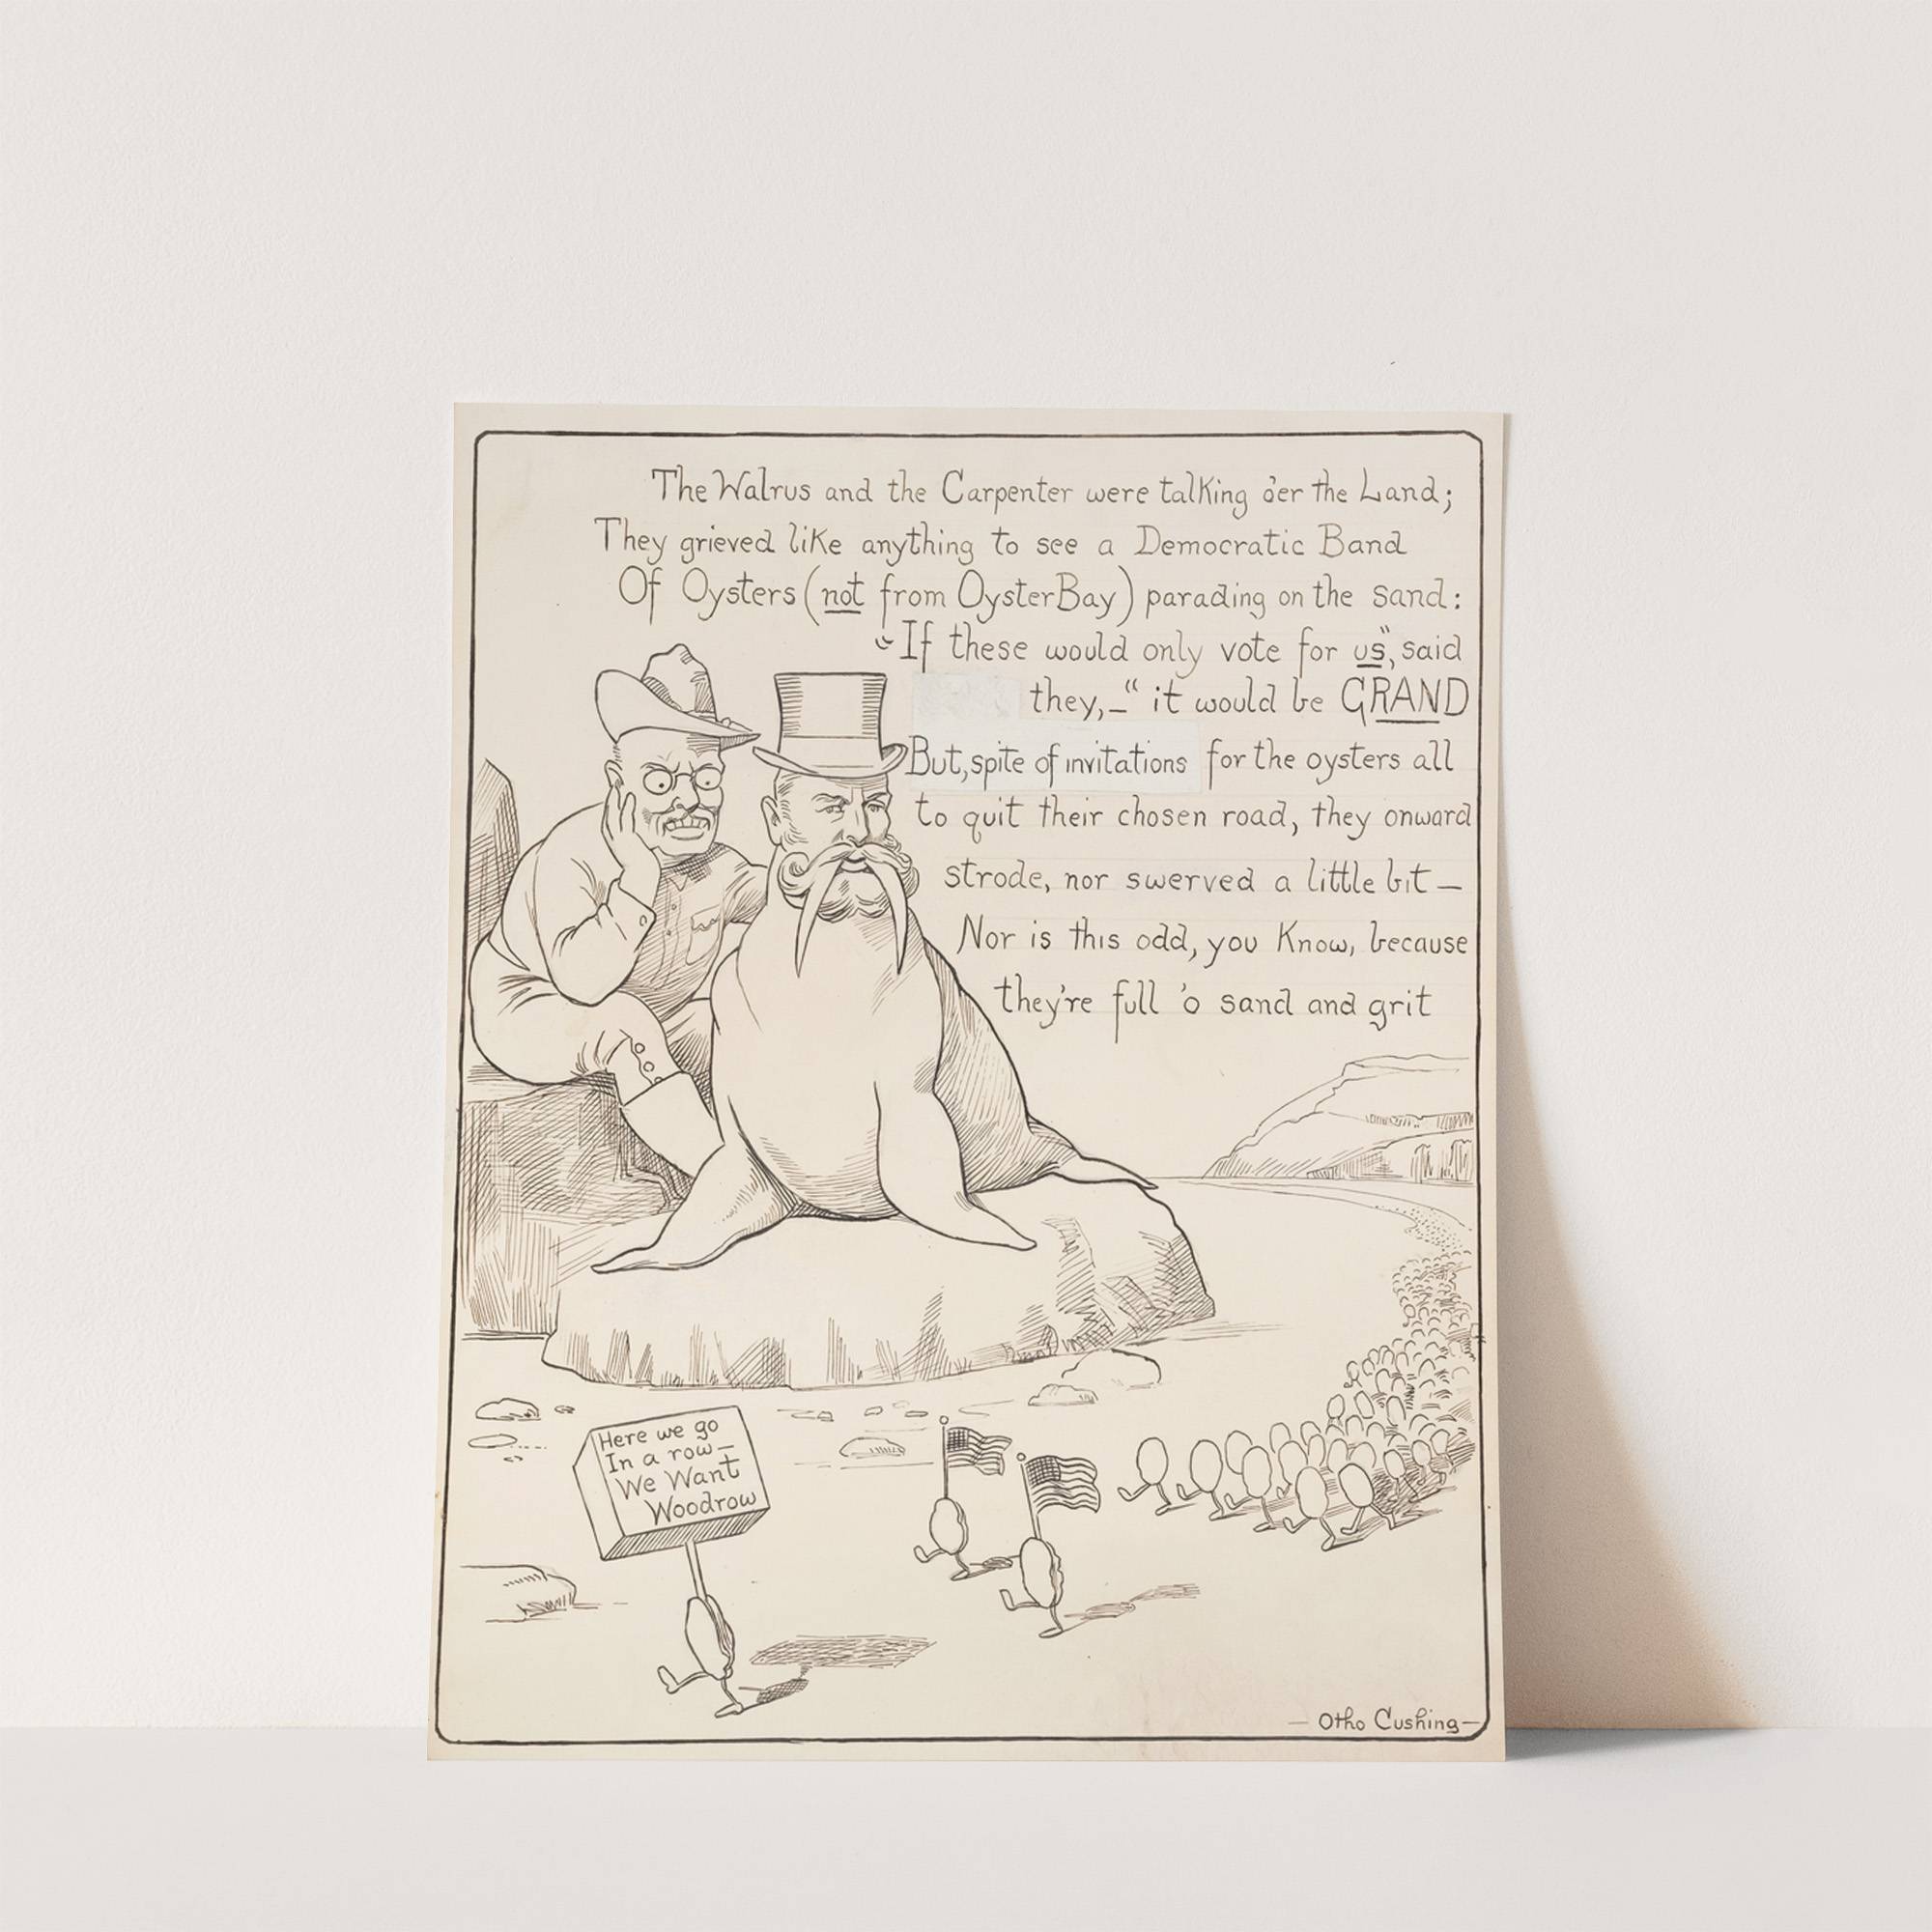 The Walrus and the Carpenter were talking o'er the Land;
They grieved like anything to see a Democratic Band
Of Oysters (not from Oyster Bay) parading on the sand:
"If these would only vote for us", said
they,—" it would be GRAND
But, spite of invitations for the oysters all
to quit their chosen road, they onward
strode, nor swerved a little bit—
Nor is this odd, you know, because
they're full 'o sand and grit
Here we go
In a row—
We Want
Woodrow
— Otho Cushing —